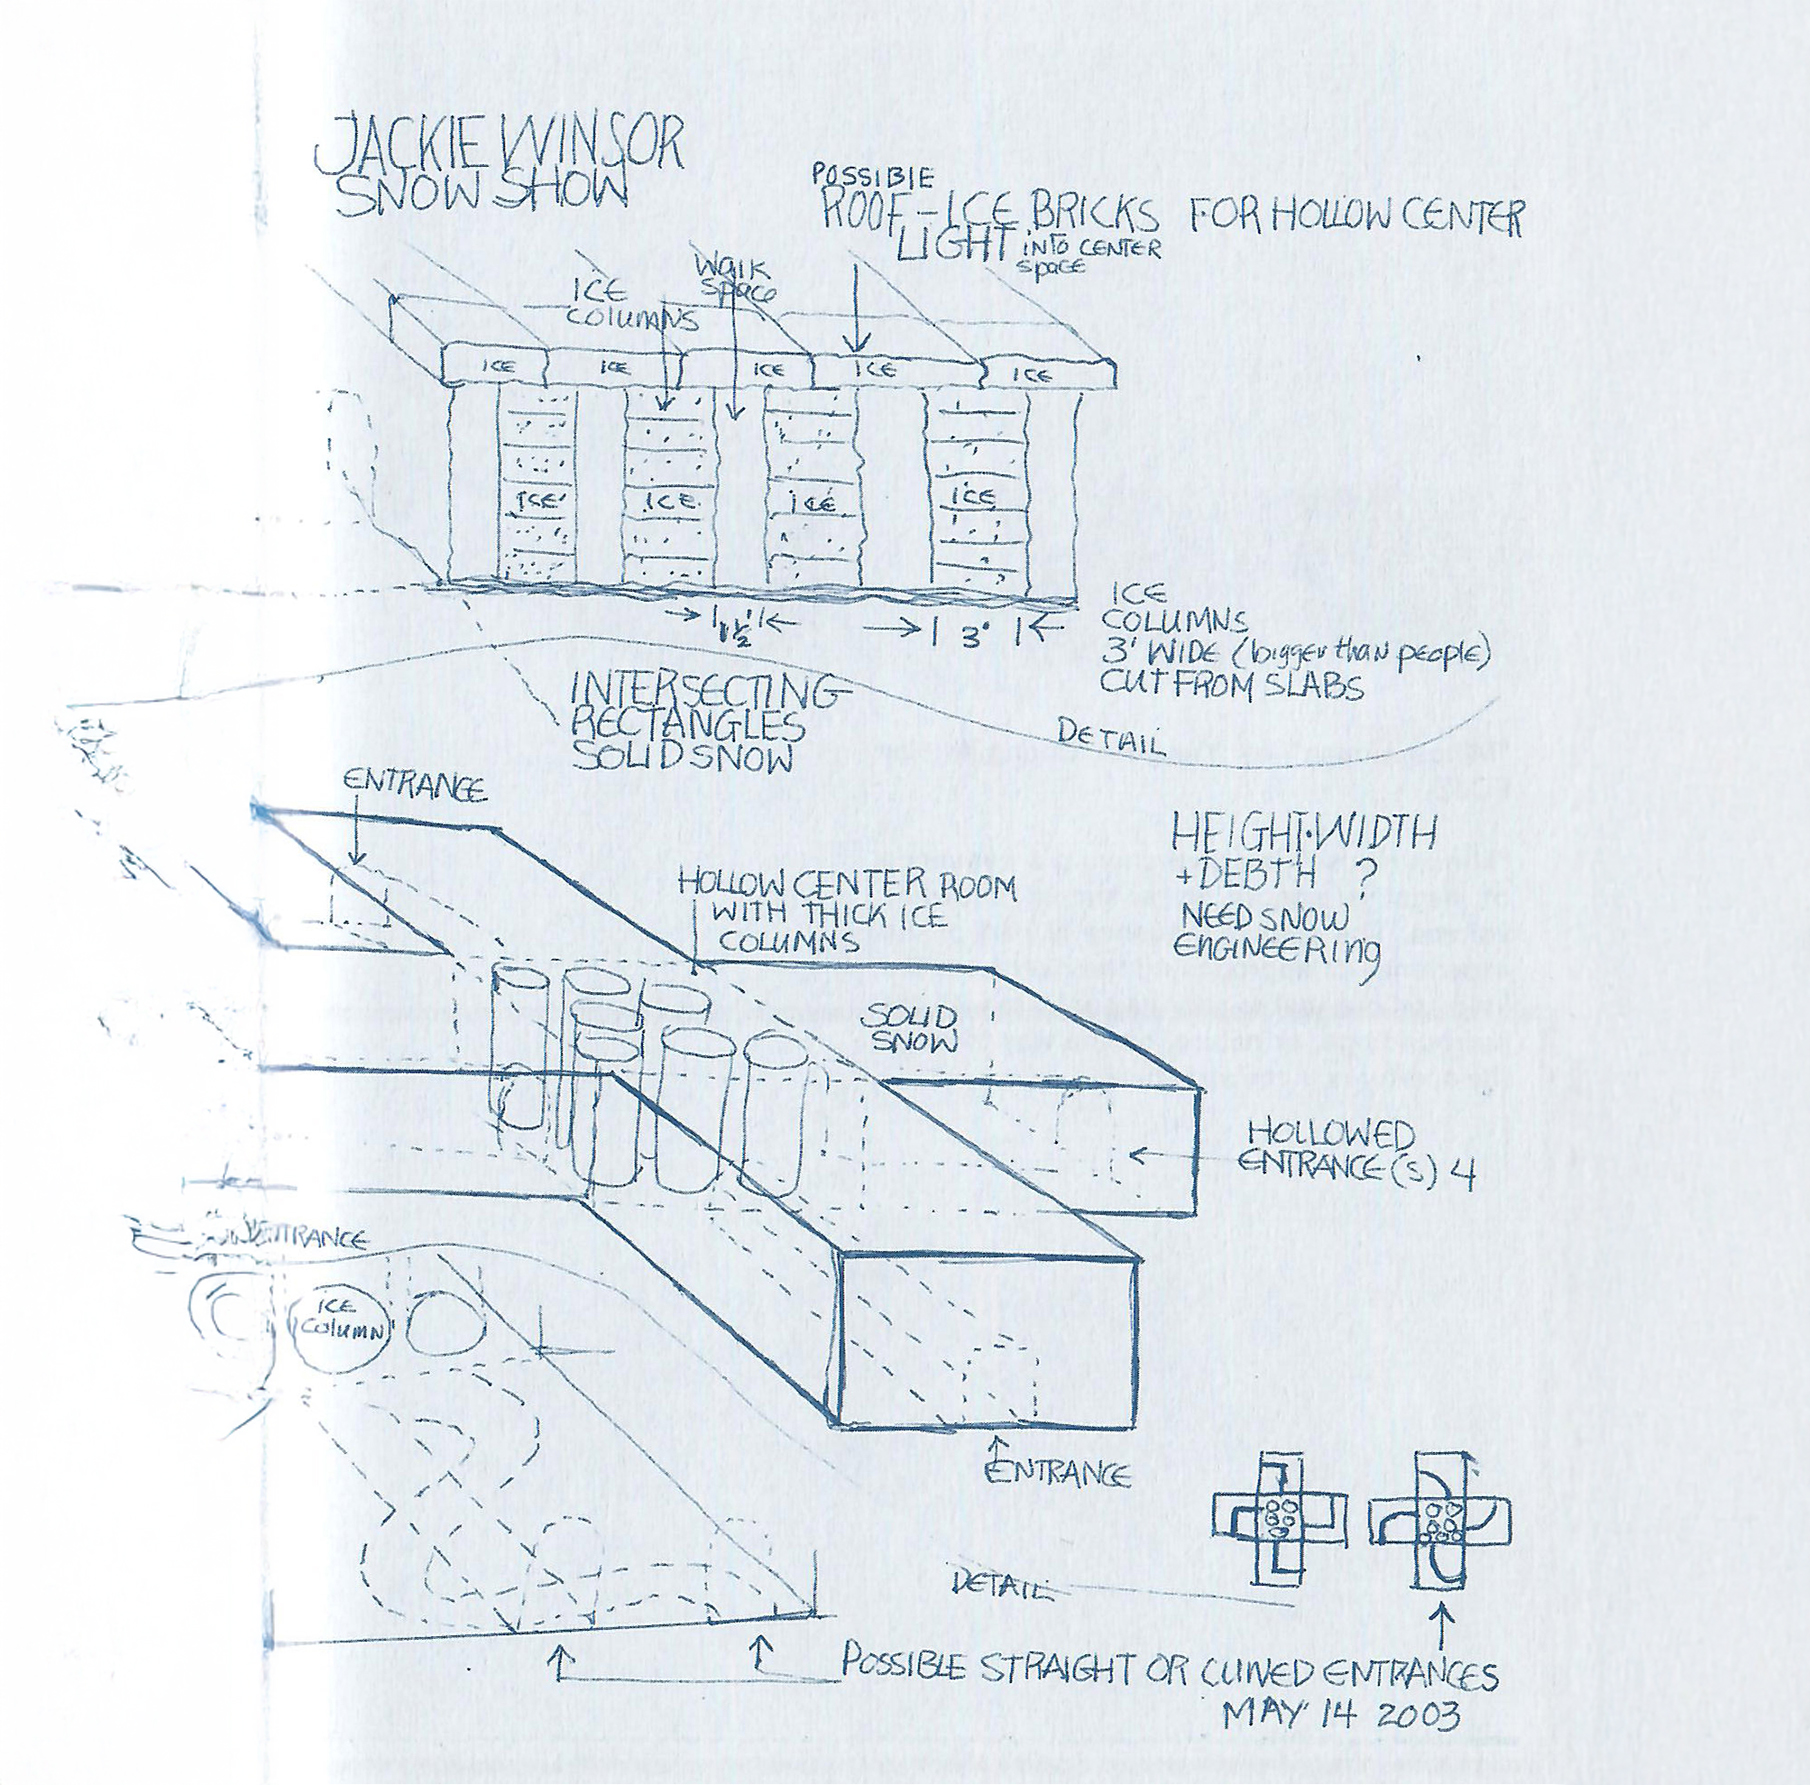 JACKIE WINSOR
SNOW SHOW
POSSIBLE
ROOF-ICE BRICKS FOR HOLLOW CENTER
LIGHT INTO CENTER
space
Walk
space
ICE
COLUMNS
ICE ICE ICE ICE ICE
ICE ICE ICE ICE
1½' 3'
ICE
COLUMNS
3' WIDE (bigger than people)
CUT FROM SLABS
INTERSECTING
RECTANGLES
SOLID SNOW
DETAIL
ENTRANCE
HEIGHT·WIDTH
+DEBTH ?
NEED SNOW
ENGINEERING
HOLLOW CENTER ROOM
WITH THICK ICE
COLUMNS
SOLID
SNOW
HOLLOWED
ENTRANCE(S) 4
ENTRANCE
ICE
COLUMN
ENTRANCE
DETAIL
POSSIBLE STRAIGHT OR CURVED ENTRANCES
MAY 14 2003